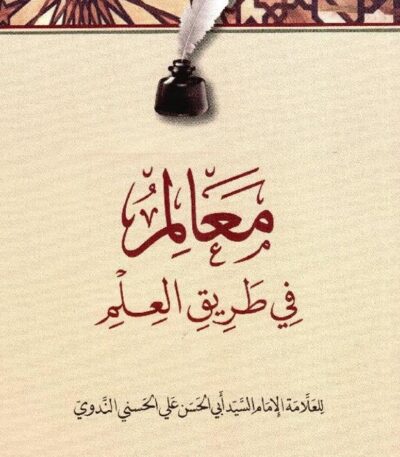 مَعَالِمُ
فِي طَرِيقِ العِلْمِ
لِلعَلَّامَة الإِمَام السَّيّد أَبي الحَسَن عَلي الحَسَني النَّدويّ